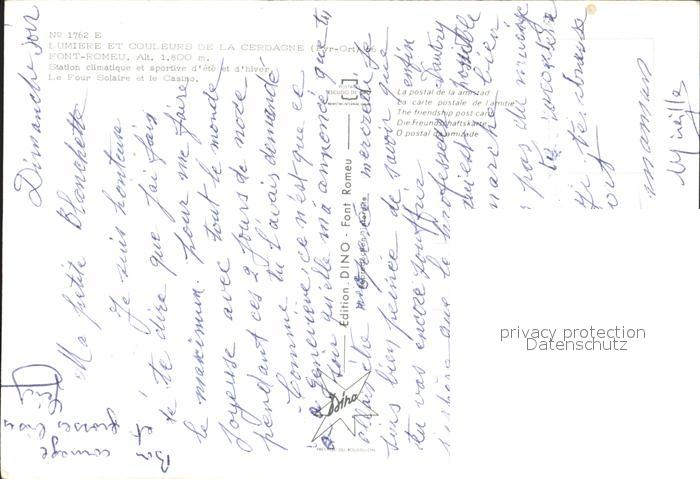 Nº 1762 E
LUMIERE ET COULEURS DE LA CERDAGNE (Pyr-Or) 66
FONT-ROMEU, Alt. 1.800 m.
Station climatique et sportive d'été et d'hiver
Le Four Solaire et le Casino.
La postal de la amistad
La carte postale de l'amitié
The friendship post card
Die Freundschaftskarte
O postal da amizade
Edition DINO - Font Romeu
Dino
Dimanche soir
Ma petite Blanchette
Je suis honteuse
te dire que j'ai fait
le maximum pour me faire
joyeuse avec tout le monde
pendant ces 2 jours de noce
Comme tu l'avais demandé
à Geneviève, ce n'est que ce
soir qu'elle m'a annoncé que tu
allais être mercredi, je
suis bien peinée de savoir que
tu vas encore souffrir enfin
que le professeur
marche bien
pas du mariage
te racontera
Je te brasse
fort
maman
Mireille
courage
grosses bises
privacy protection
Datenschutz